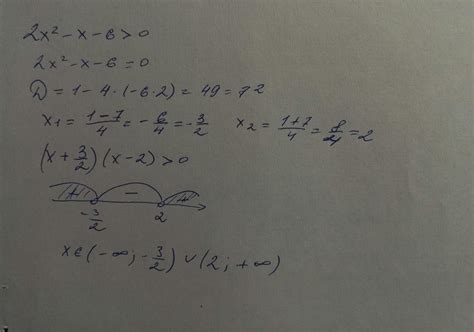 2x² - x - 6 > 0
2x² - x - 6 = 0
D = 1 - 4 · (-6 · 2) = 49 = 7²
x₁ = (1-7)/4 = -6/4 = -3/2   x₂ = (1+7)/4 = 8/4 = 2
(x + 3/2)(x - 2) > 0
+ - +
-3/2 2
x∈(-∞; -3/2) ∪ (2; +∞)